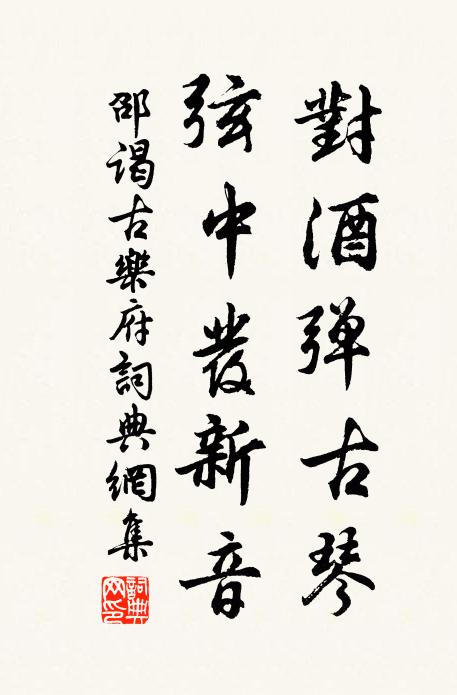 對酒弹古琴
弦中發新音
邵謁古樂府詞典網集
詞典网印